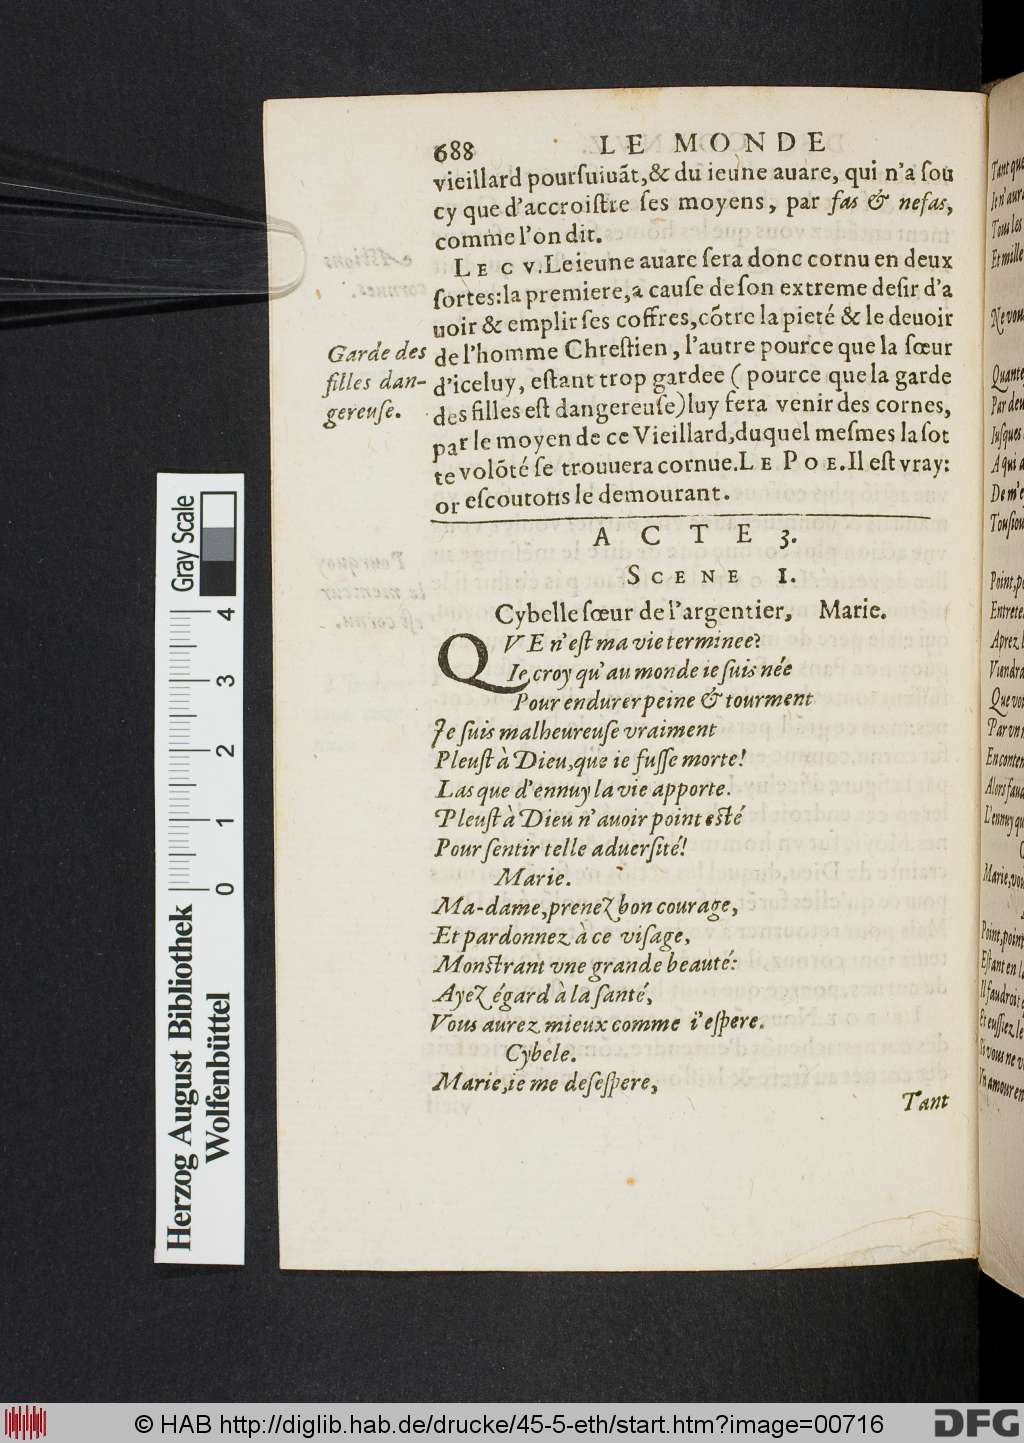 688 LE MONDE
vieillard pourſuiuãt,& du ieune auare, qui n'a ſou
cy que d'accroiſtre ſes moyens, par fas & nefas,
comme l'on dit.
LE CV. Le ieune auare ſera donc cornu en deux
ſortes: la premiere, a cauſe de ſon extreme deſir d'a
uoir & emplir ſes coffres, cõtre la pieté & le deuoir
de l'homme Chreſtien, l'autre pource que la ſœur
d'iceluy, eſtant trop gardee (pource que la garde
des filles eſt dangereuſe) luy fera venir des cornes,
par le moyen de ce Vieillard, duquel meſmes la ſot
te volõté ſe trouuera cornue. LE POE. Il eſt vray:
or eſcoutons le demourant.
Garde des
filles dan-
gereuſe.
ACTE 3.
SCENE 1.
Cybelle ſœur de l'argentier, Marie.
QVE n'eſt ma vie terminee?
Ie croy qu'au monde ie ſuis née
Pour endurer peine & tourment
Je ſuis malheureuſe vraiment
Pleuſt à Dieu, que ie fuſſe morte!
Las que d'ennuy la vie apporte.
Pleuſt à Dieu n'auoir point eſté
Pour ſentir telle aduerſité!
Marie.
Ma-dame, prenez bon courage,
Et pardonnez à ce viſage,
Monſtrant vne grande beauté:
Ayez égard à la ſanté,
Vous aurez mieux comme i'eſpere.
Cybele.
Marie, ie me deſeſpere,
Tant
Gray Scale
0 1 2 3 4
Herzog August Bibliothek
Wolfenbüttel
© HAB http://diglib.hab.de/drucke/45-5-eth/start.htm?image=00716
DFG